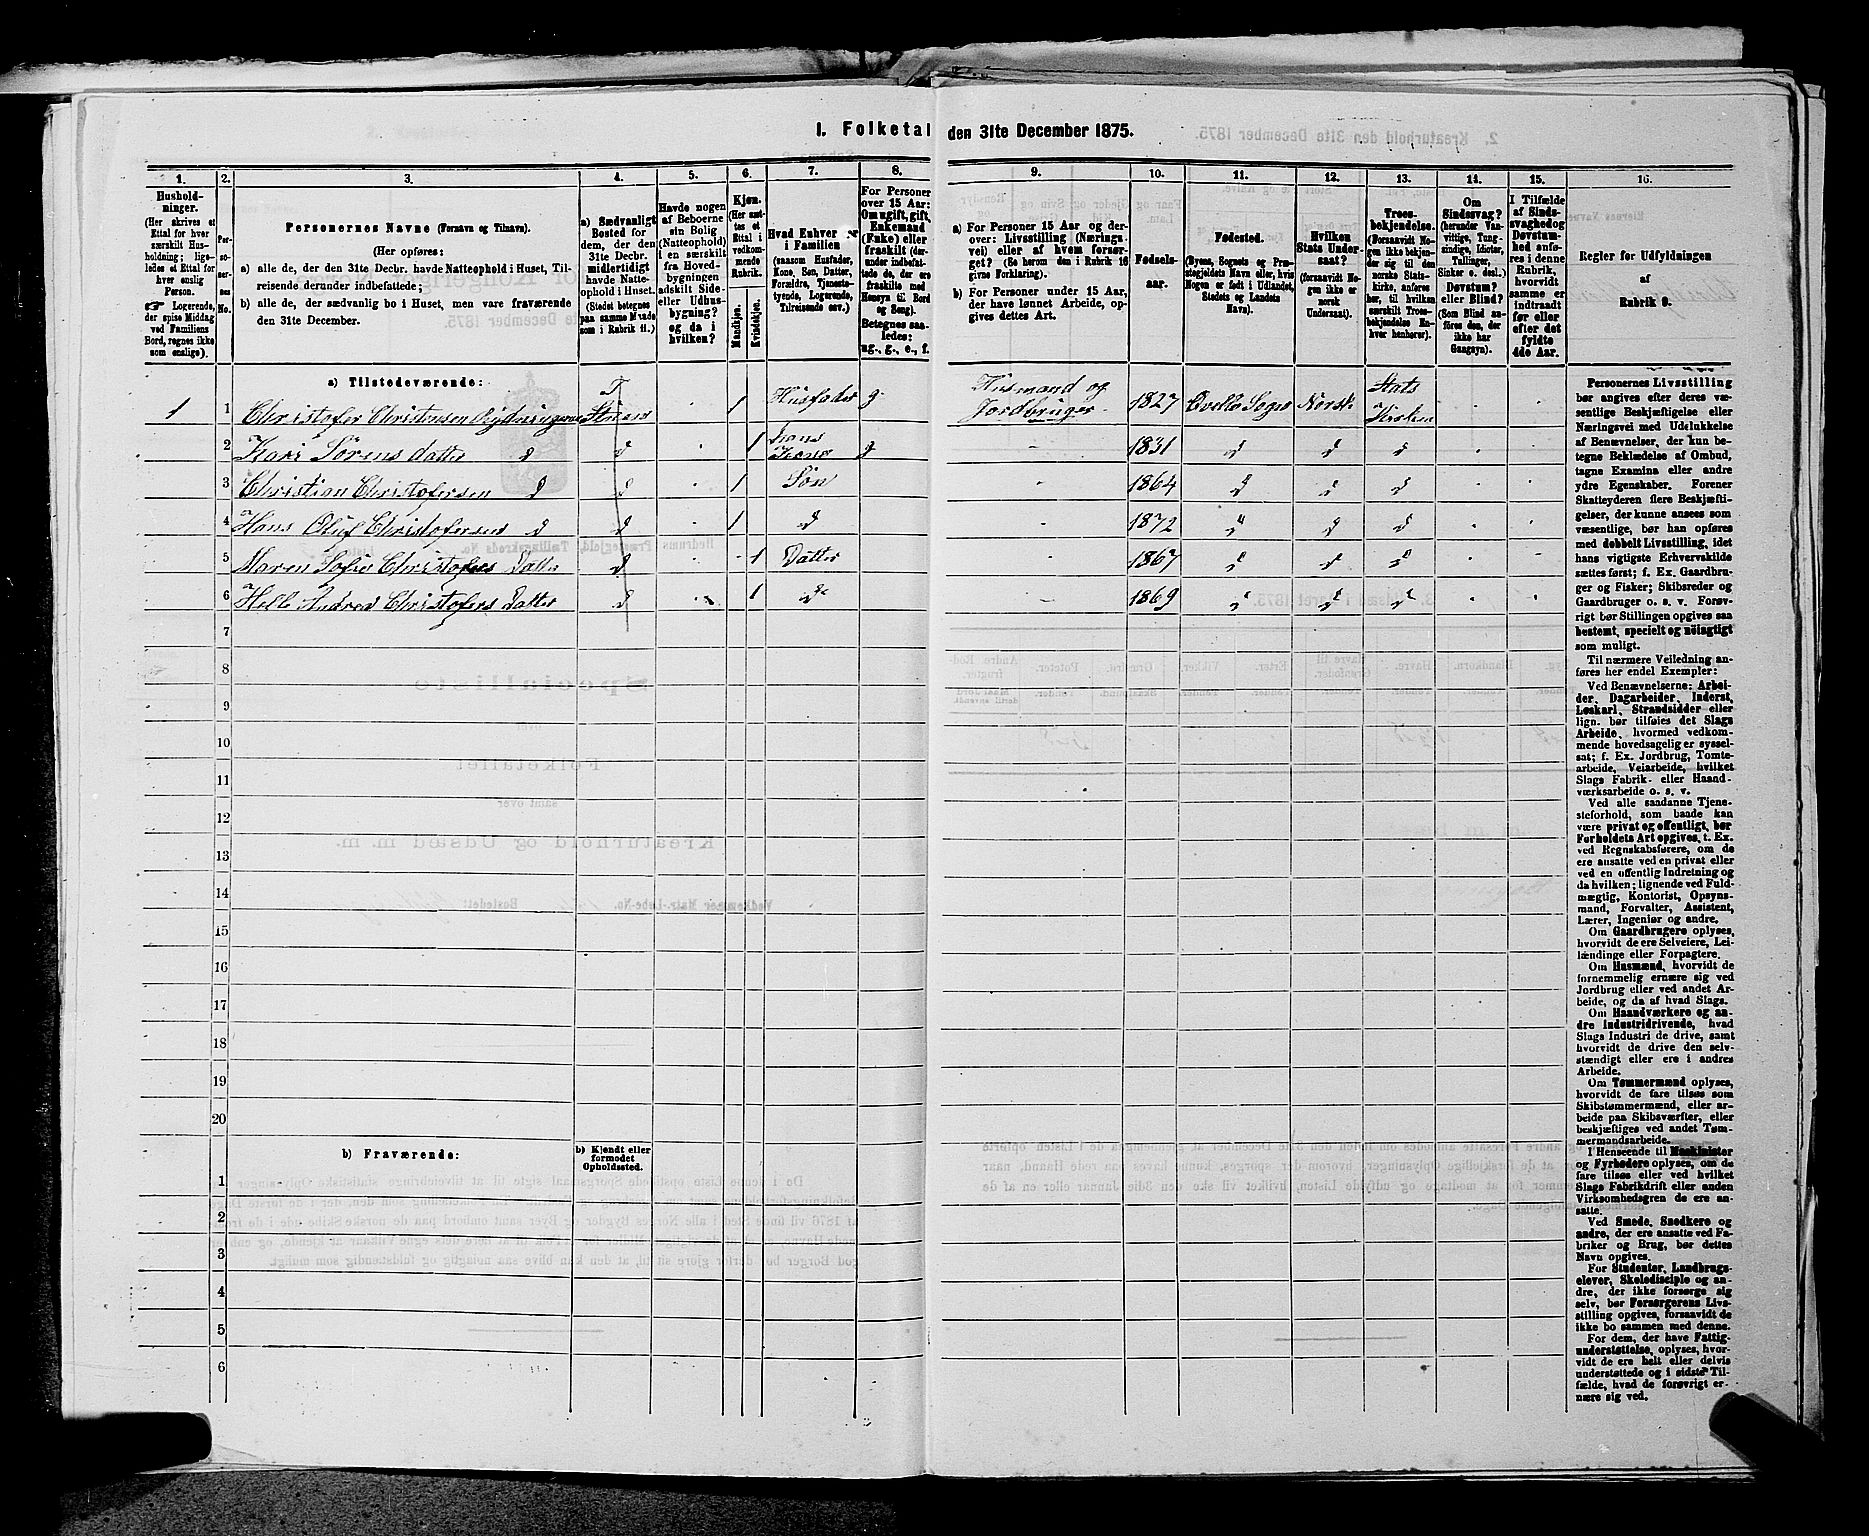 I. Folketal den 31te December 1875.
1. 2. 3. 4. 5. 6. 7. 8. 9. 10. 11. 12. 13. 14. 15. 16.
Hushold-
ninger.
(Her skrives et
Ettal for hver
særskilt Hus-
holdning; lige-
ledes et Ettal for
hver enslig
Person.
☞ Logerende,
der spise Middag
ved Familiens
Bord, regnes ikke
som enslige).
Per-
so-
ner-
nes
No.
Personernes Navne (Fornavn og Tilnavn).
(Her opføres:
a) alle de, der den 31te Decbr. havde Natteophold i Huset, Til-
reisende derunder indbefattede;
b) alle de, der sædvanlig bo i Huset, men vare fraværende
den 31te December.
a) Sædvanligt
Bosted for
dem, der den
31te Decbr.
midlertidigt
havde Natte-
ophold i Huset.
(Stedet betegnes
paa samme Maade
som i Rubrik 11.)
Havde nogen
af Beboerne
sin Bolig
(Natteophold)
i en særskilt
fra Hoved-
bygningen
adskilt Side-
eller Udhus-
bygning?
og da i
hvilken?
Kjøn.
(Her sæt-
tes et
Ettal i
vedkom-
mende
Rubrik.
Mandkjøn.
Kvindekjøn.
Hvad Enhver er
i Familien
(saasom Husfader,
Kone, Søn, Datter,
Forældre, Tjeneste-
tyende, Logerende,
Tilreisende osv.)
For Personer
over 15 Aar:
Om ugift, gift,
Enkemand
(Enke) eller
fraskilt (der-
under indbefat-
tede de, der ere
fraskilte med
Hensyn til Bord
og Seng).
Betegnes saa-
ledes:
ug., g., e., f.
a) For Personer 15 Aar og der-
over: Livsstilling (Nærings-
vei) eller af hvem forsør-
get? (Se herom den i Rubrik 16
givne Forklaring).
b) For Personer under 15 Aar,
der have lønnet Arbeide, op-
gives dettes Art.
Fødsels-
aar.
Fødested.
(Byens, Sognets og Præ-
stegjeldets Navn eller, hvis
Nogen er født i Udlandet,
Stedets og Landets
Navn).
Hvilken
Stats Under-
saat?
(forsaavidt No-
gen ikke er
norsk
Undersaat).
Troes-
bekjendelse.
(Forsaavidt No-
gen ikke bekjen-
der sig til den
norske Stats-
kirke, anføres
her, til hvilken
særskilt Troes-
bekjendelse En-
hver henhører).
Om
Sindssvag?
(herunder Van-
vittige, Tung-
sindige, Idioter,
Tullinger,
Sinker o. desl.)
Døvstum?
eller Blind?
(Som Blind an-
føres den, der
ikke har
Gangsyn).
I Tilfælde
af Sinds-
svaghed og
Døvstum-
hed anfø-
res i denne
Rubrik,
hvorvidt
samme er
indtraadt
før eller
efter det
fyldte
4de Aar.
Regler for Udfyldningen
af
Rubrik 9.
a) Tilstedeværende:
1 1 Christofer Christensen 1 Husfader g Husmand og Jordbruger 1827 Norsk Stats Kirken
2 Kari Sørens datter d d 1 hans Kone g 1831 d d d
3 Christian Christofersen d d 1 Søn 1864 d d d
4 Hans Oluf Christofersen d d 1 d 1872 d d d
5 Maren Sofie Christofers Datter d 1 Datter 1867 d d d
6 Helle Andrea Christofers datter d 1 d 1869 d d d
7
8
9
10
11
12
13
14
15
16
17
18
19
20
b) Fraværende:
b) Kjendt eller
formodet
Opholdssted.
1
2
3
4
5
6
Personernes Livsstilling
bør angives efter deres væ-
sentlige Beskjæftigelse eller
Næringsvei med Udelukkelse
af Benævnelser, der kun be-
tegne Beklædelse af Ombud,
tagne Examina eller andre
ydre Egenskaber. Forener
Skatteyderen flere Beskjæfti-
gelser, der kunne ansees som
væsentlige, bør han opføres
med dobbelt Livsstilling, idet
hans vigtigste Erhvervskilde
sættes først; f. Ex. Gaardbru-
ger og Fisker; Skibsreder og
Gaardbruger o. s. v. Forøv-
rigt bør Stillingen opgives saa
bestemt, specielt og nøiagtigt
som muligt.
Til nærmere Veiledning an-
føres her endel Exempler:
Ved Benævnelserne: Arbei-
der, Dagarbeider, Inderst,
Løskarl, Strandsidder eller
lign. bør tilføies det Slags
Arbeide, hvormed vedkom-
mende hovedsagelig er syssel-
sat; f. Ex. Jordbrug, Tomte-
arbeide, Veiarbeide, hvilket
Slags Fabrik- eller Haand-
værksarbeide o. s. v.
Ved alle saadanne Tjene-
steforhold, som baade kan
være privat og offentligt, bør
Forholdets Art opgives, t. Ex.
ved Regnskabsførere, om de
ere ansatte ved en privat eller
ved en offentlig Indretning og
da hvilken; lignende ved Fuld-
mægtig, Kontorist, Opsyns-
mand, Forvalter, Assistent,
Lærer, Ingeniør og andre.
Om Gaardbrugere oplyses,
hvorvidt de ere Selveiere, Lei-
lændinge eller Forpagtere.
Om Husmænd, hvorvidt de
fornemmelig ernære sig ved
Jordbrug eller ved andet Ar-
beide, og da af hvad Slags.
Om Haandværkere og an-
dre industridrivende, hvad
Slags Industri de drive, samt
hvorvidt de drive den selv-
stændigt eller ere i andres
Arbeide.
Om Tømmermænd oplyses,
hvorvidt de fare tilsøs som
Skibstømmermænd, eller ar-
beide paa Skibsværfter, eller
beskjæftiges ved andet Tøm-
mermandsarbeide.
I Henseende til Maskinister
og Fyrbødere oplyses, om de
fare tilsøs eller ved hvilket
Slags Fabrikdrift eller anden
Virksomhedsgren de ere an-
satte.
Ved Smede, Snedkere og
andre, der ere ansatte ved Fa-
briker og Brug, bør dettes
Navn opgives.
For Studenter, Landbrugs-
elever, Skoledisciple og an-
dre, der ikke forsørge sig
selv, bør Forsørgerens Livs-
stilling opgives, forsaavidt de
ikke bo sammen med denne.
For dem, der have Fattig-
understøttelse, oplyses, hvor-
vidt de ere helt eller delvis
understøttede og i sidste Til-
fælde, hvad de forøvrigt er-
nære sig ved.